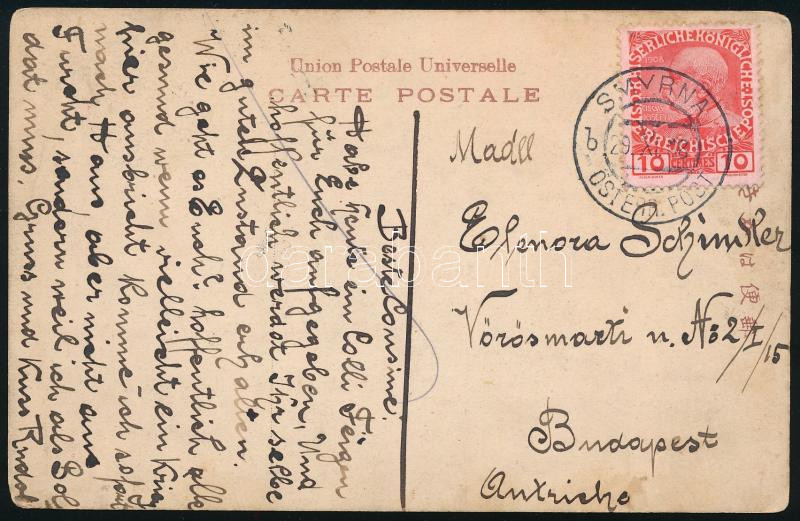 Union Postale Universelle
CARTE POSTALE
KAISERLICHE KÖNIGLICHE ÖSTERREICHISCHE POST
1908
10 CENTIMES 10
SMYRNA
b 29 XII
ÖSTERR. POST
Madll
Elenora Schindler
Vörösmarti u. No 2 I/15
Budapest
Autriche
便
Beste Cousine!
Habe heute ein Colli Feigen
für Euch aufgegeben, Und
hoffentlich werdet Ihr selbe
im guten Zustand erhalten.
Wie geht es Euch? hoffentlich alle
gesund wenn vielleicht ein Krieg
hier ausbricht komme ich sofort
nach Haus, aber nicht aus
Furcht, sondern weil ich als Sol
dat muss. Gruss und Kuss Rudol
darabanth